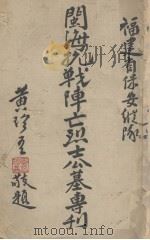 福建省保安縱隊
閩海抗戰陣亡烈士公墓專刊
黃珍吾
敬題